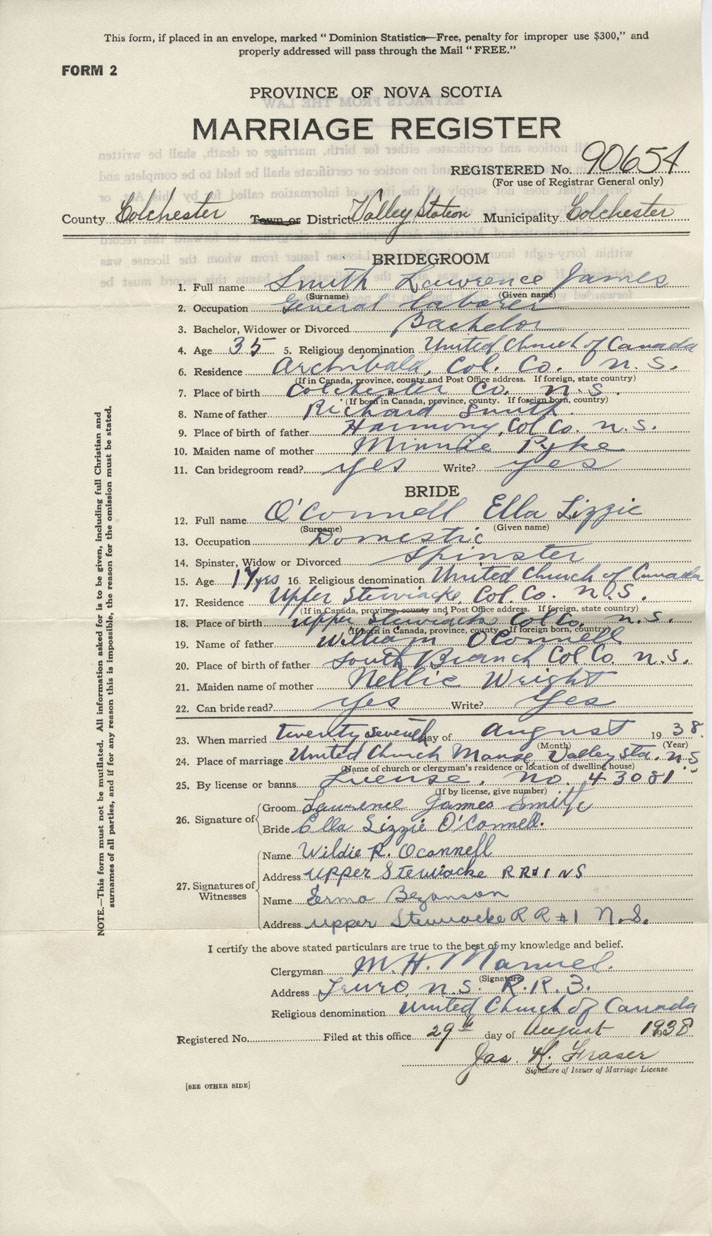 This form, if placed in an envelope, marked "Dominion Statistics—Free, penalty for improper use $300," and
properly addressed will pass through the Mail "FREE."
FORM 2
PROVINCE OF NOVA SCOTIA
MARRIAGE REGISTER
REGISTERED No. 90654
(For use of Registrar General only)
County Colchester Town or District Valley Station Municipality Colchester
BRIDEGROOM
1. Full name Smith Lawrence James
(Surname) (Given name)
2. Occupation General laborer
3. Bachelor, Widower or Divorced Bachelor
4. Age 35 5. Religious denomination United Church of Canada
6. Residence Archibald, Col. Co. N.S.
(If in Canada, province, county and Post Office address. If foreign, state country)
7. Place of birth Colchester Co. N.S.
(If born in Canada, province, county. If foreign born, country)
8. Name of father Richard Smith
9. Place of birth of father Harmony, Col Co. N.S.
10. Maiden name of mother Minnie Pyke
11. Can bridegroom read? yes Write? yes
BRIDE
12. Full name O'Connell Ella Lizzie
(Surname) (Given name)
13. Occupation Domestic
14. Spinster, Widow or Divorced Spinster
15. Age 17 yrs 16. Religious denomination United Church of Canada
17. Residence Upper Stewiacke Col Co. N.S.
(If in Canada, province, county and Post Office address. If foreign, state country)
18. Place of birth Upper Stewiacke Col Co. N.S.
(If born in Canada, province, county. If foreign born, country)
19. Name of father William O'Connell
20. Place of birth of father South Branch Col Co N.S.
21. Maiden name of mother Nellie Wright
22. Can bride read? yes Write? yes
23. When married twenty seventh day of August 1938.
(Month) (Year)
24. Place of marriage United Church Manse Valley Sta. N.S
(Name of church or clergyman's residence or location of dwelling house)
25. By license or banns License, No. 43081
(If by license, give number)
26. Signature of Groom Lawrence James Smith
Bride Ella Lizzie O'Connell.
27. Signatures of Witnesses
Name Wildie R. Oconnell
Address Upper Stewiacke RR#1 NS
Name Erma Bezanson
Address Upper Stewiacke RR #1 N.S.
I certify the above stated particulars are true to the best of my knowledge and belief.
Clergyman M.H. Manuel.
(Signature)
Address Truro, N.S. R.R.3.
Religious denomination United Church of Canada
Registered No. Filed at this office 29th day of August 1938
Jas. K. Fraser
Signature of Issuer of Marriage License.
[SEE OTHER SIDE]
NOTE.—This form must not be mutilated. All information asked for is to be given, including full Christian and
surnames of all parties, and if for any reason this is impossible, the reason for the omission must be stated.